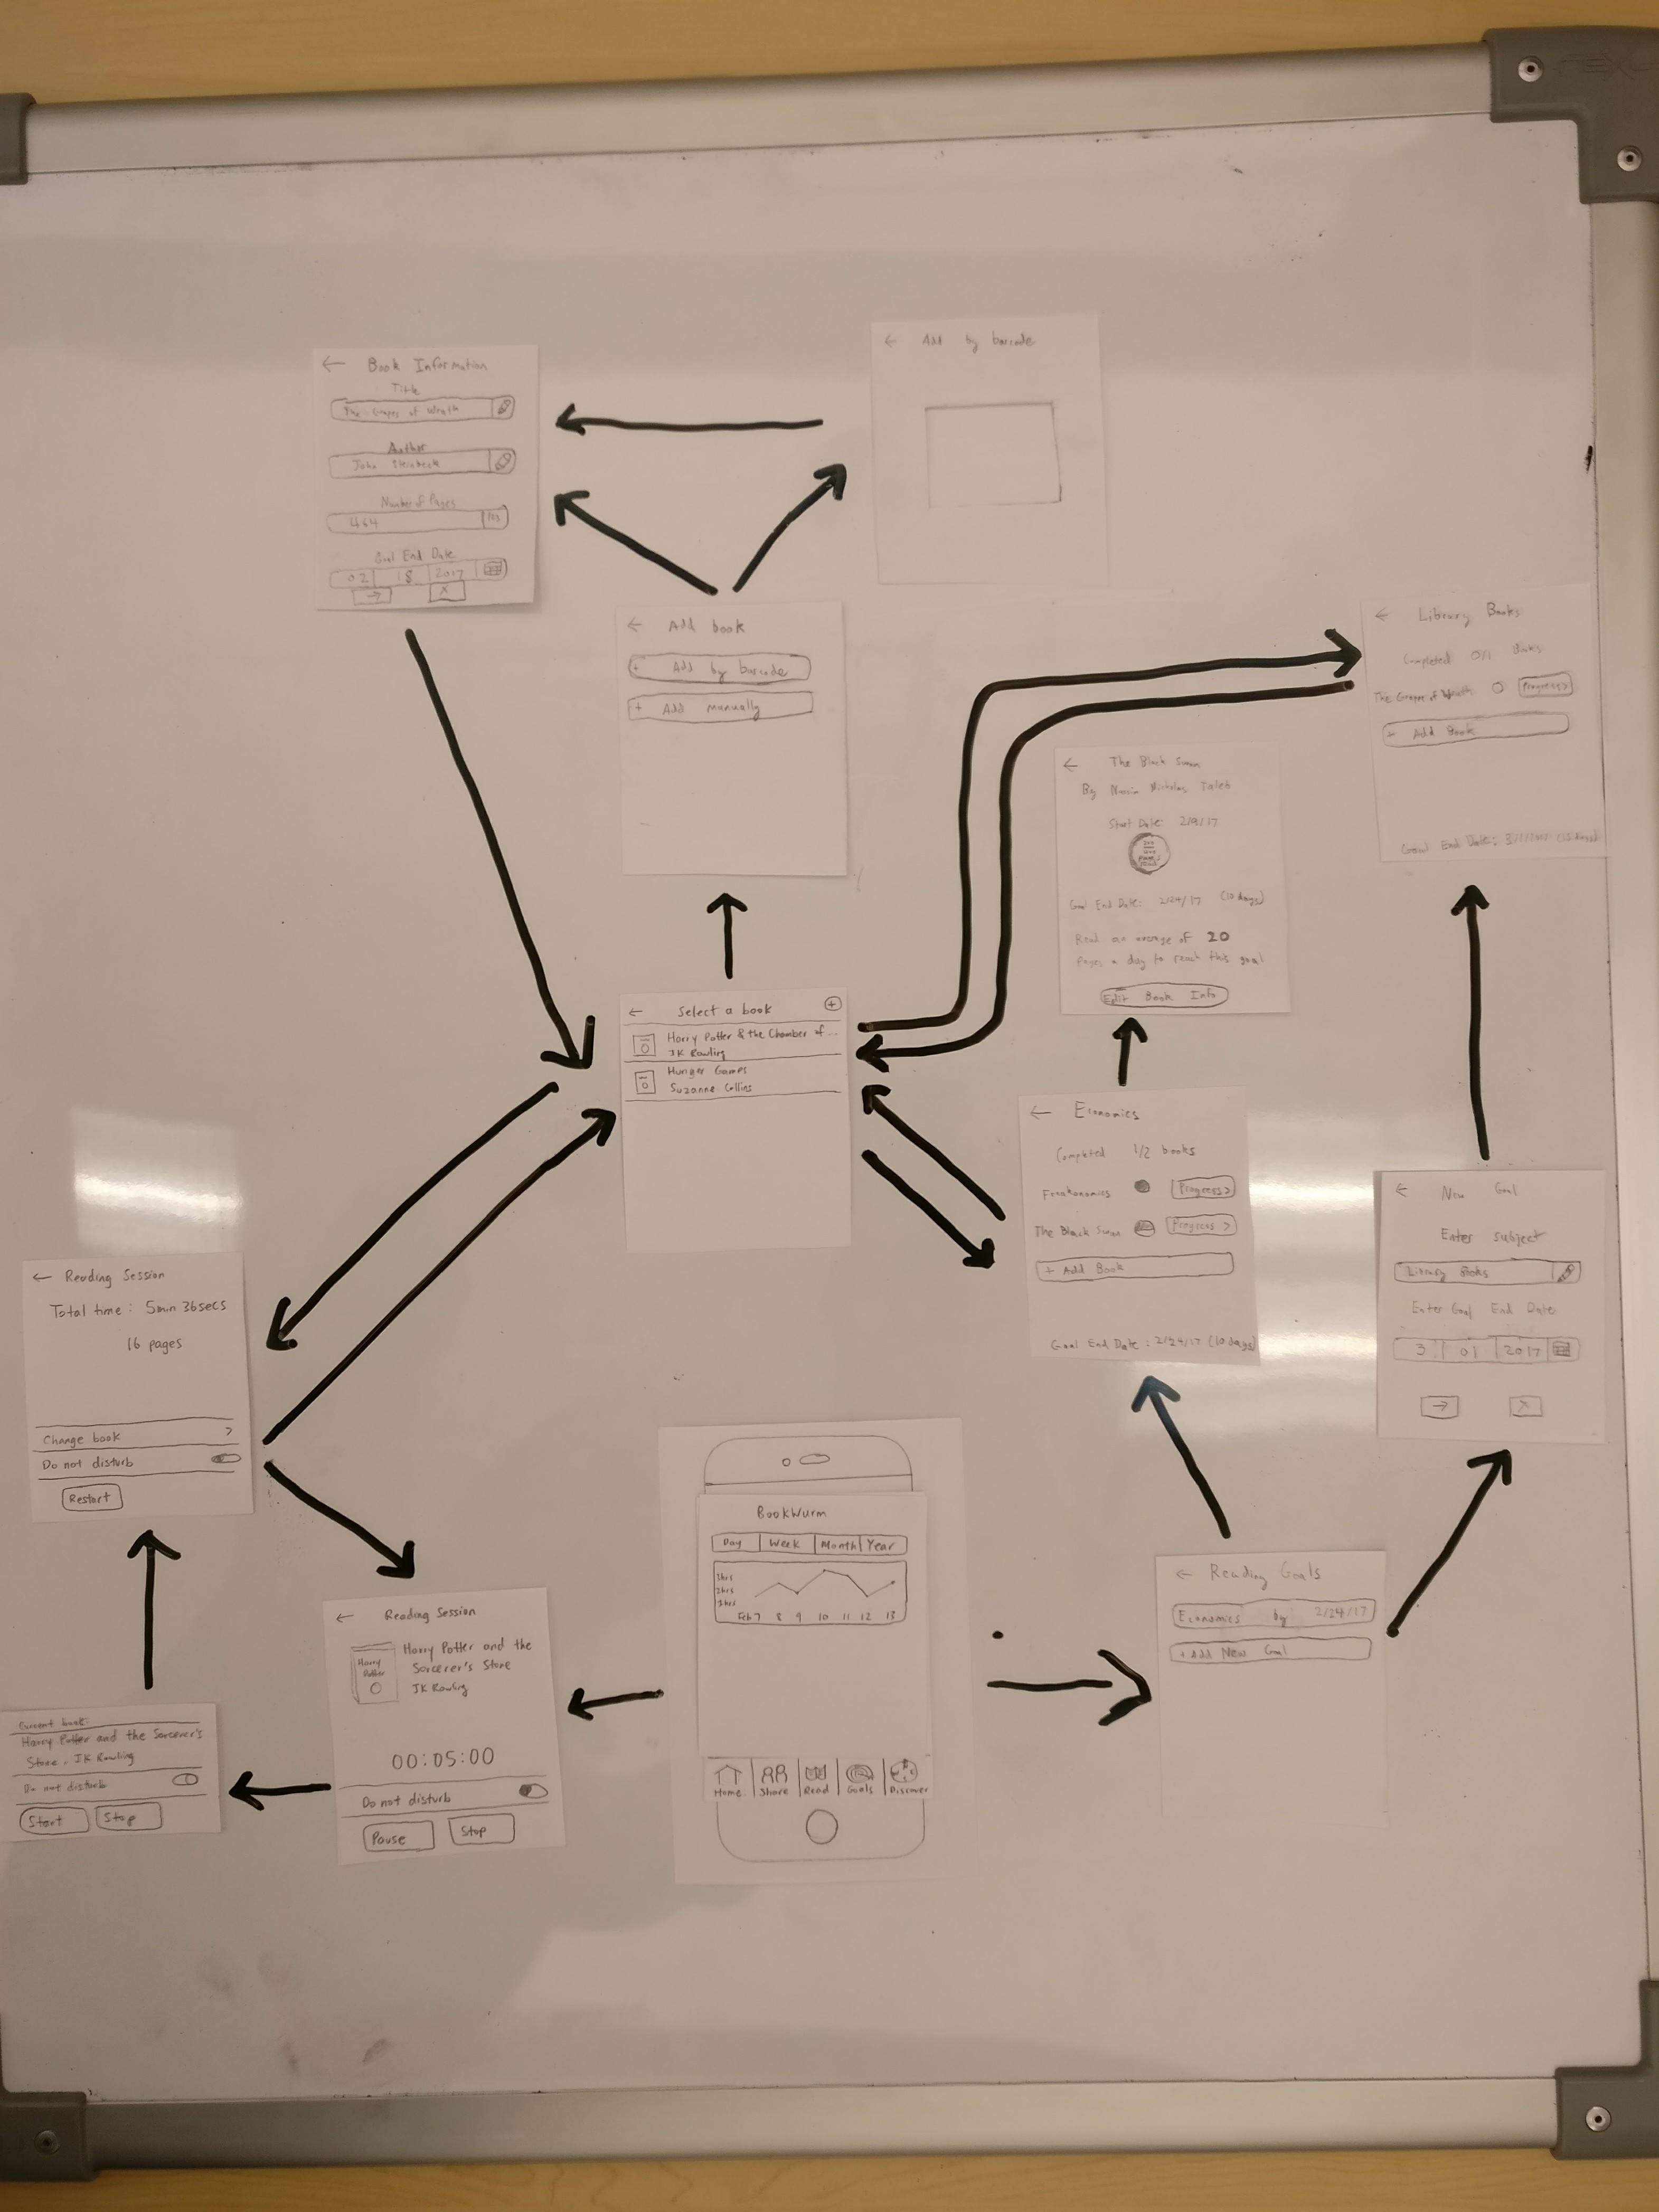 ← Book Information
Title
The Grapes of Wrath
Author
John Steinbeck
Number of Pages
464
Goal End Date
02 18 2017
→ X
← Add by barcode
← Add book
+ Add by barcode
+ Add manually
← Library Books
Completed 0/1 Books
The Grapes of Wrath Progress >
+ Add Book
Goal End Date: 3/1/2017
← The Black Swan
By Nassim Nicholas Taleb
Start Date: 2/9/17
Goal End Date: 2/24/17 (10 days)
Read an average of 20
pages a day to reach this goal
Edit Book Info
← Select a book +
Harry Potter & the Chamber of ...
JK Rowling
Hunger Games
Suzanne Collins
← Economics
Completed 1/2 books
Freakonomics Progress >
The Black Swan Progress >
+ Add Book
Goal End Date: 2/24/17 (10 days)
← New Goal
Enter subject
Library Books
Enter Goal End Date
3 01 2017
→ X
← Reading Session
Total time: 5min 36secs
16 pages
Change book >
Do not disturb
Restart
BookWurm
Day Week Month Year
3hrs
2hrs
1hrs
Feb 7 8 9 10 11 12 13
Home Share Read Goals Discover
← Reading Goals
Economics by 2/24/17
+ Add New Goal
← Reading Session
Harry Potter and the
Sorcerer's Stone
JK Rowling
Harry
Potter
00:05:00
Do not disturb
Pause Stop
Current book:
Harry Potter and the Sorcerer's
Stone, JK Rowling
Do not disturb
Start Stop